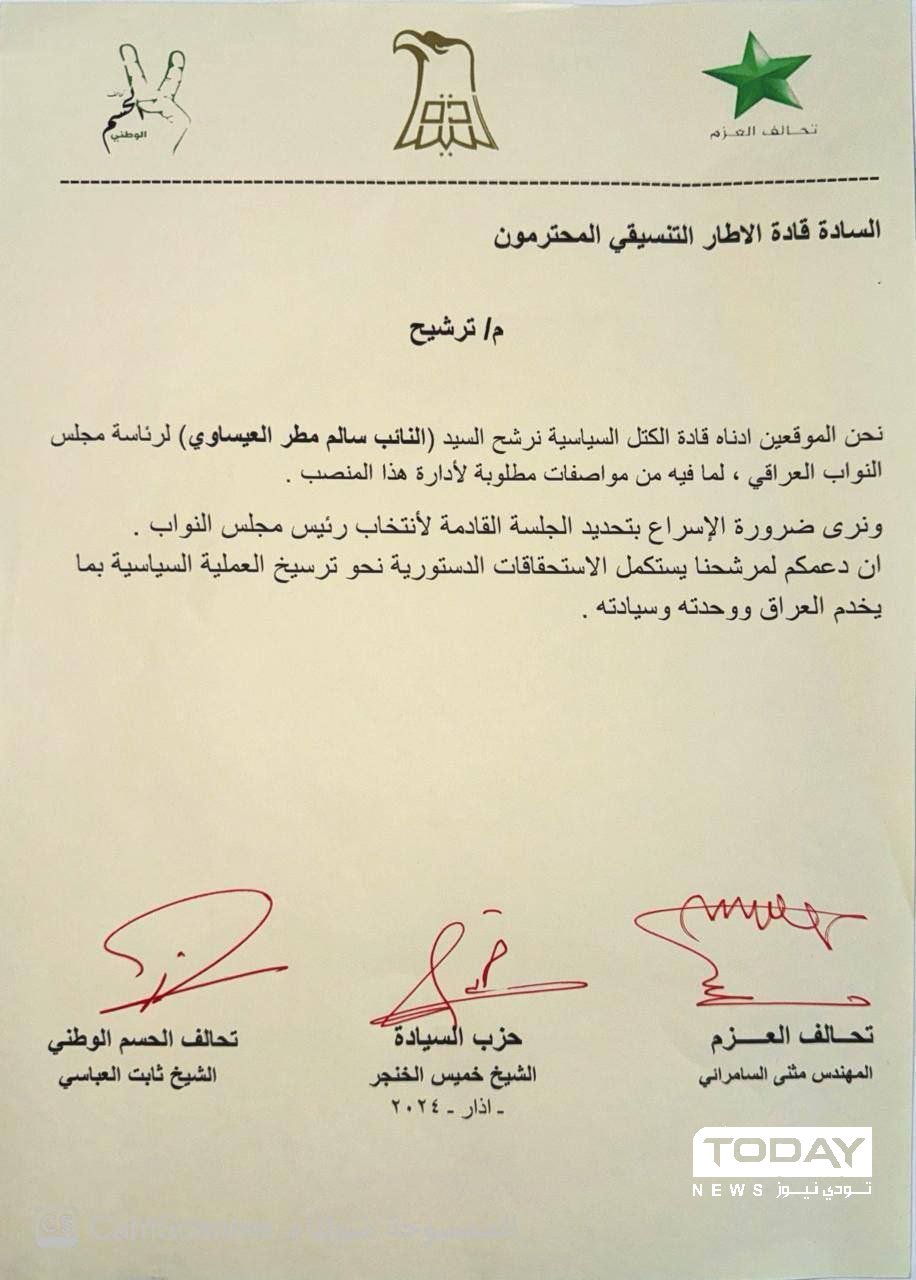 الحسم
الوطني
السيادة
تحالف العزم
السادة قادة الاطار التنسيقي المحترمون
م/ ترشيح
نحن الموقعين ادناه قادة الكتل السياسية نرشح السيد (النائب سالم مطر العيساوي) لرئاسة مجلس
النواب العراقي ، لما فيه من مواصفات مطلوبة لأدارة هذا المنصب .
ونرى ضرورة الإسراع بتحديد الجلسة القادمة لأنتخاب رئيس مجلس النواب .
ان دعمكم لمرشحنا يستكمل الاستحقاقات الدستورية نحو ترسيخ العملية السياسية بما
يخدم العراق ووحدته وسيادته .
تحـالف العـــزم
المهندس مثنى السامرائي
حزب السيادة
الشيخ خميس الخنجر
ـ اذار ـ ٢٠٢٤
تحالف الحسم الوطني
الشيخ ثابت العباسي
TODAY
NEWS تـودي نيـوز
CS CamScanner الممسوحة ضوئيا بـ